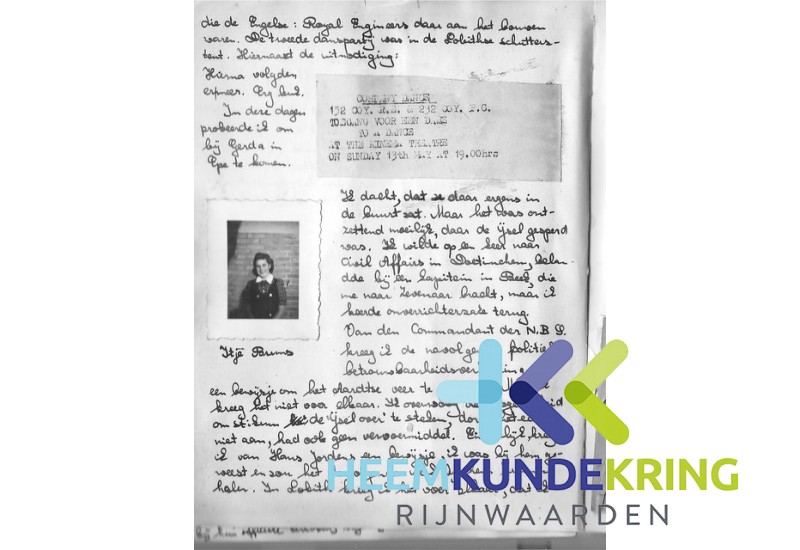 die de Engelse: Royal Engineers daar aan het bouwen
waren. De tweede dansparty was in de Lobithse schutters-
tent. Hiernaast de uitnodiging:
Hierna volgden
er meer. Erg leuk.
In deze dagen
probeerde ik om
bij Gerda in
Epe te komen.
COMPANY DANCE
132 COY. R.E. & 232 COY. P.C.
TOEGANG VOOR EEN DAME
TO A DANCE
AT THE KINEMA THEATRE
ON SUNDAY 13th MAY AT 19.00hrs
Ik dacht, dat ze daar ergens in
de buurt zat. Maar het was ont-
zettend moeilijk, daar de IJsel gesperd
was. Ik wilde op een keer naar
Civil Affairs in Doetinchem, belan-
dde bij een kapitein in Beek, die
me naar Zevenaar bracht, maar ik
keerde onverrichterzake terug.
Van den Commandant der N.B.S.
kreeg ik de navolgende politieke
Itje Bruns
een bewijsje om het Aardtse veer te
kreeg het niet voor elkaar. Ik overwoog
om stiekum de IJsel over te steken,
niet aan, had ook geen vervoermiddel.
ik van Hans Jordens een bewijsje, ik was bij hem ge-
weest en zou het
halen. In Lobith kreeg ik het voor elkaar, dat ik
HEEMKUNDEKRING
RIJNWAARDEN